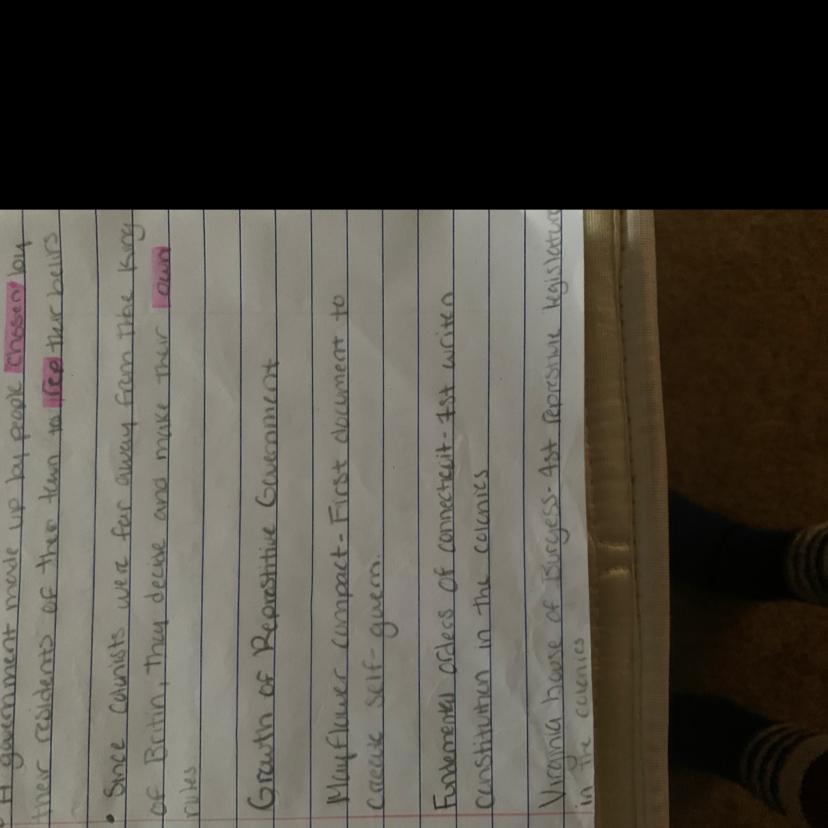 • A government made up by people chosen by
their residents of their town to rep their beliefs
• Since colonists were far away from the King
of Britin, they decise and make their own
rules
Growth of Represtitive Government
Mayflower compact - First document to
create self-govern.
Fundemental orders of connecticut - 1st writen
constitution in the colonies
Virginia house of Burgess - 1st represtitive legislature
in the colonies